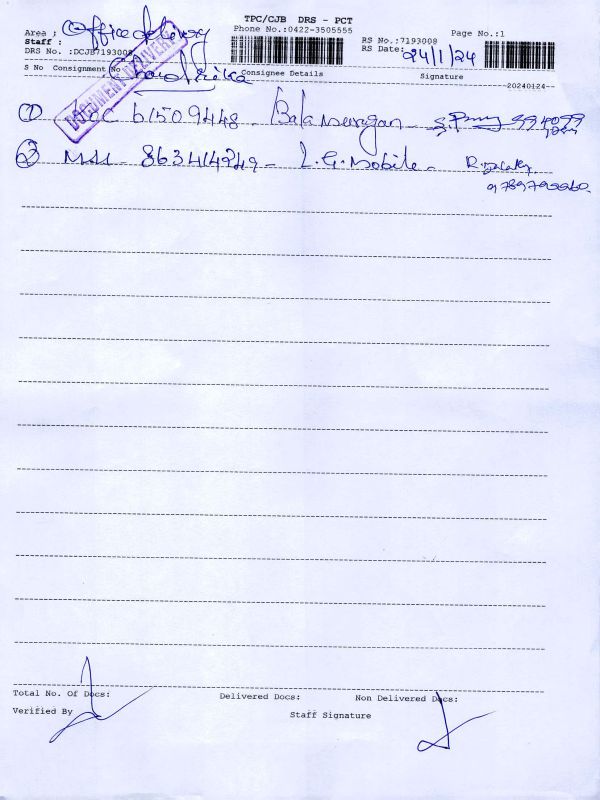 TPC/CJB DRS - PCT
Area : Office delivery
Phone No.:0422-3505555
Page No.:1
Staff :
RS No.:7193008
DRS No. :DCJB7193008
RS Date: 24/1/24
DOCUMENT DELIVERY
S No Consignment No Consignee Details Signature
20240124
① 61509448 - Balamurugan -
② 863414249 - L.G. Mobile -
Total No. Of Docs: Delivered Docs: Non Delivered Docs:
Verified By
Staff Signature